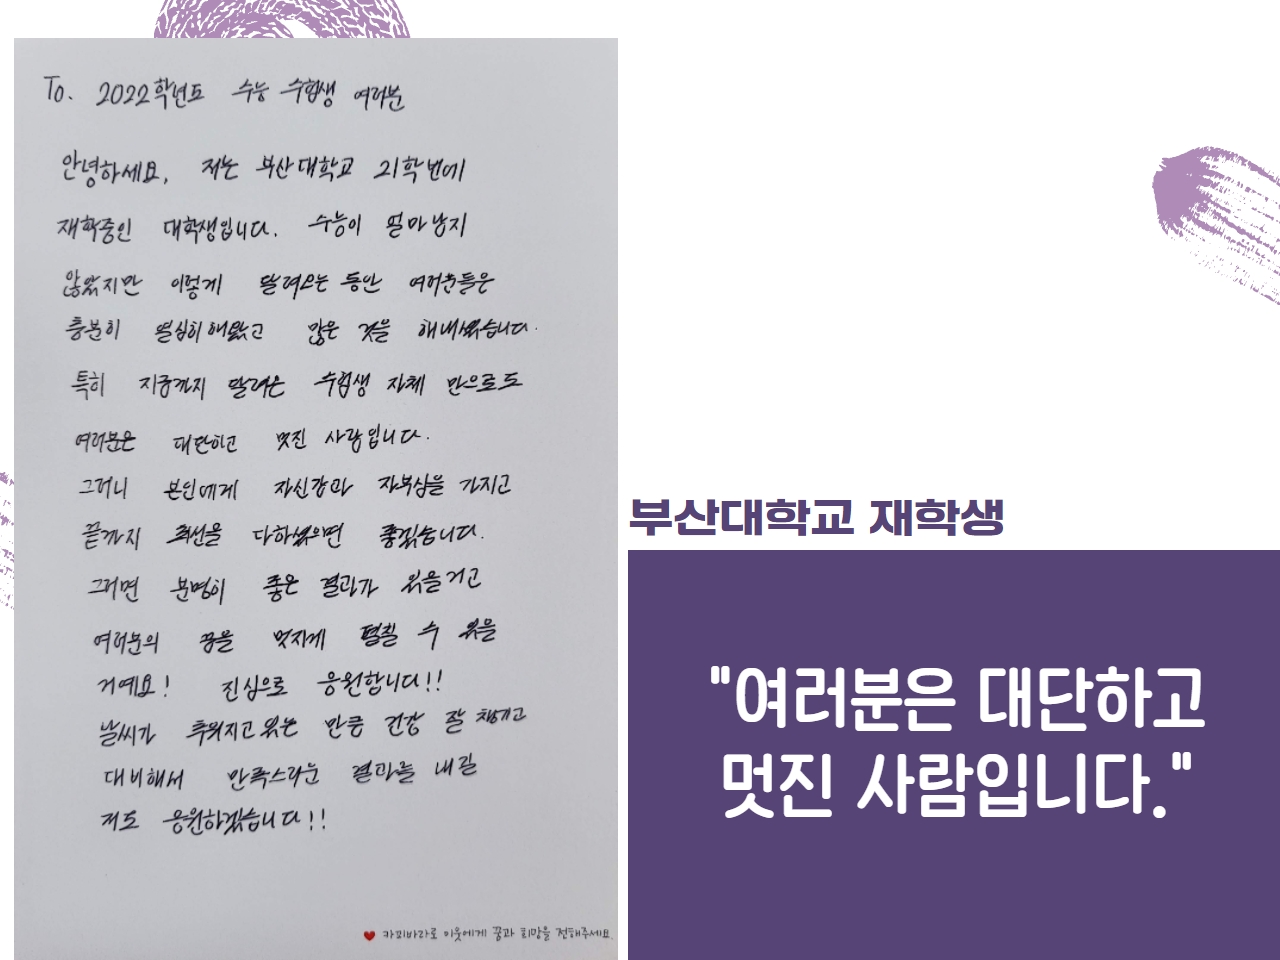 To. 2022학년도 수능 수험생 여러분
안녕하세요, 저는 부산대학교 21학번에
재학중인 대학생입니다. 수능이 얼마남지
않았지만 이렇게 달려오는 동안 여러분들은
충분히 열심히해왔고 많은 것을 해내왔습니다.
특히 지금까지 달려온 수험생 자체 만으로도
여러분은 대단하고 멋진 사람입니다.
그러니 본인에게 자신감과 자부심을 가지고
끝까지 최선을 다하셨으면 좋겠습니다.
그러면 분명히 좋은 결과가 있을거고
여러분의 꿈을 멋지게 펼칠 수 있을
거예요! 진심으로 응원합니다!!
날씨가 추워지고있는 만큼 건강 잘 챙기고
대비해서 만족스러운 결과를 내길
저도 응원하겠습니다!!
❤ 카피바라로 이웃에게 꿈과 희망을 전해주세요.
부산대학교 재학생
"여러분은 대단하고
멋진 사람입니다."